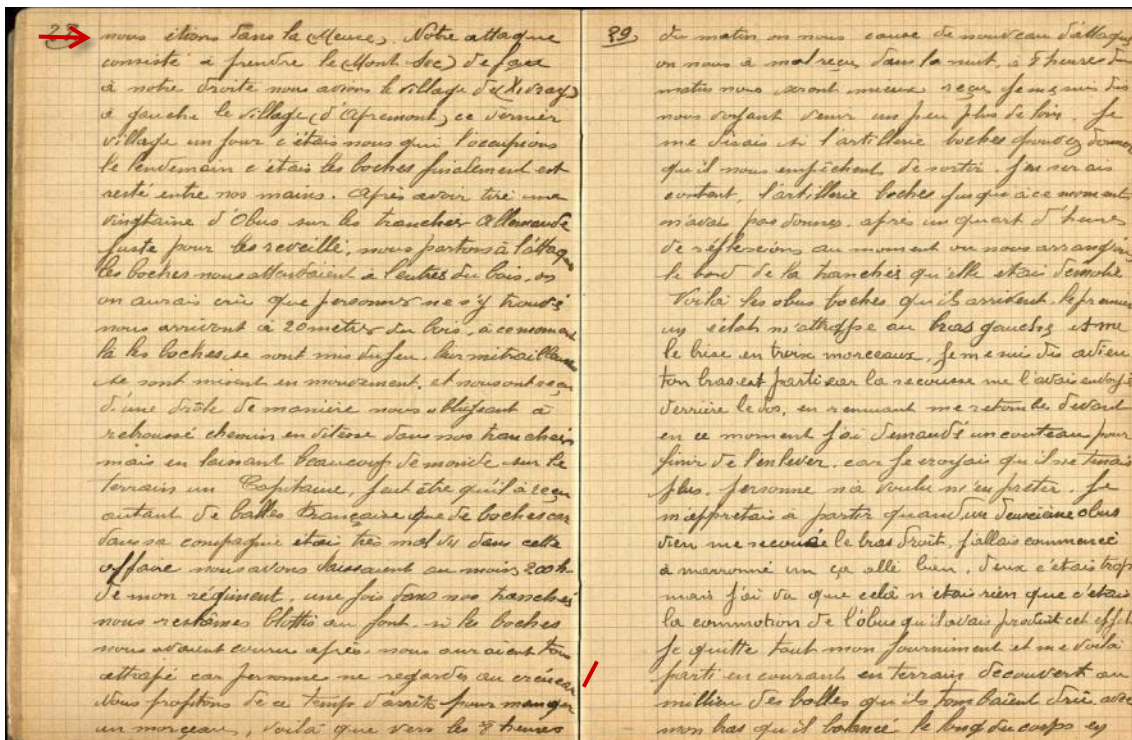 28
nous étions dans la (Meuse). Notre attaque
consisté à prendre le (Mont-Sec) de face
à notre droite nous avions le village de (Xivray)
à gauche le village (d'Apremont) ce dernier
village un jour c'étais nous qui l'occupions
le lendemain c'étais les boches finalement est
resté entre nos mains. Après avoir tiré une
vingtaine d'Obus sur les tranches Allemande
juste pour les reveillé, nous partons à l'áttaque
les boches nous attendaient à l'entres du bois, on
on aurais cru que personnes ne s'y trouvé
nous arrivont à 20 metres du bois, à ce moment
là les boches se sont mis du feu. leur mitrailleuses
se sont misent en mouvement, et nous ont reçu
d'une drôle de manière nous obligeant à
rebroussé chemin en vitesse dans nos tranchés
mais en laissant beaucoup de monde sur le
terrain un Capitaine, peut être qu'il à reçu
autant de balles Française que de boches car
dans sa compagnie étais très mal vu dans cette
affaire nous avons laissaient au moins 200 h.
de mon régiment, une fois dans nos tranchés
nous restâmes blottis au font. si les boches
nous avaient courus après, nous auraient tous
attrapé car personne ne regardes au créneau
Nous profitons de ce temps d'arrêts pour manger
un morceau, voilà que vers les 8 heures
29
du matin on nous cause de nouveau d'áttaque
on nous à mal reçu dans la nuit, à 8 heures du
matin nous seront mieux reçu je me suis dis
nous voyant venir un peu plus de loin. Je
me disais si l'artillerie boches pouvez donner
qu'il nous empêchent de sortir. j'en serais
contant, l'artillerie boches jusqu'à ce moment
n'avai pas donner. après un quart d'heures
de réflexions au moment ou nous
le bord de la tranches qu'elle étais démolie
Voilà les obus boches qu'ils arrivent. le premier
un éclat m'attrappe au bras gauches et me
le brise en troix morceaux, je me sui dis adieu
ton bras est parti car la secousse me l'avais envoyé
derrière le dos, en remuant me retombe devant
en ce moment j'ai demandé un couteau pour
finir de l'enlever. car je croyais qu'il ne tenais
plus. personne n'a voulu m'en prêter. Je
m'apprêtais à partir quand un deuxième obus
vien me secouée le bras droit, j'allais commencé
à marronné un ça allé bien, deux c'étais trop
mais j'ai vu que celà n'étais rien que c'étais
la commotion de l'obus qu'il avais produit cet effet
je quitte tout mon fourniment et me voilà
parti en courant en terrain découvert au
millieu des balles qu'ils tombaient drûe avec
mon bras qu'il balancé le long du corps en